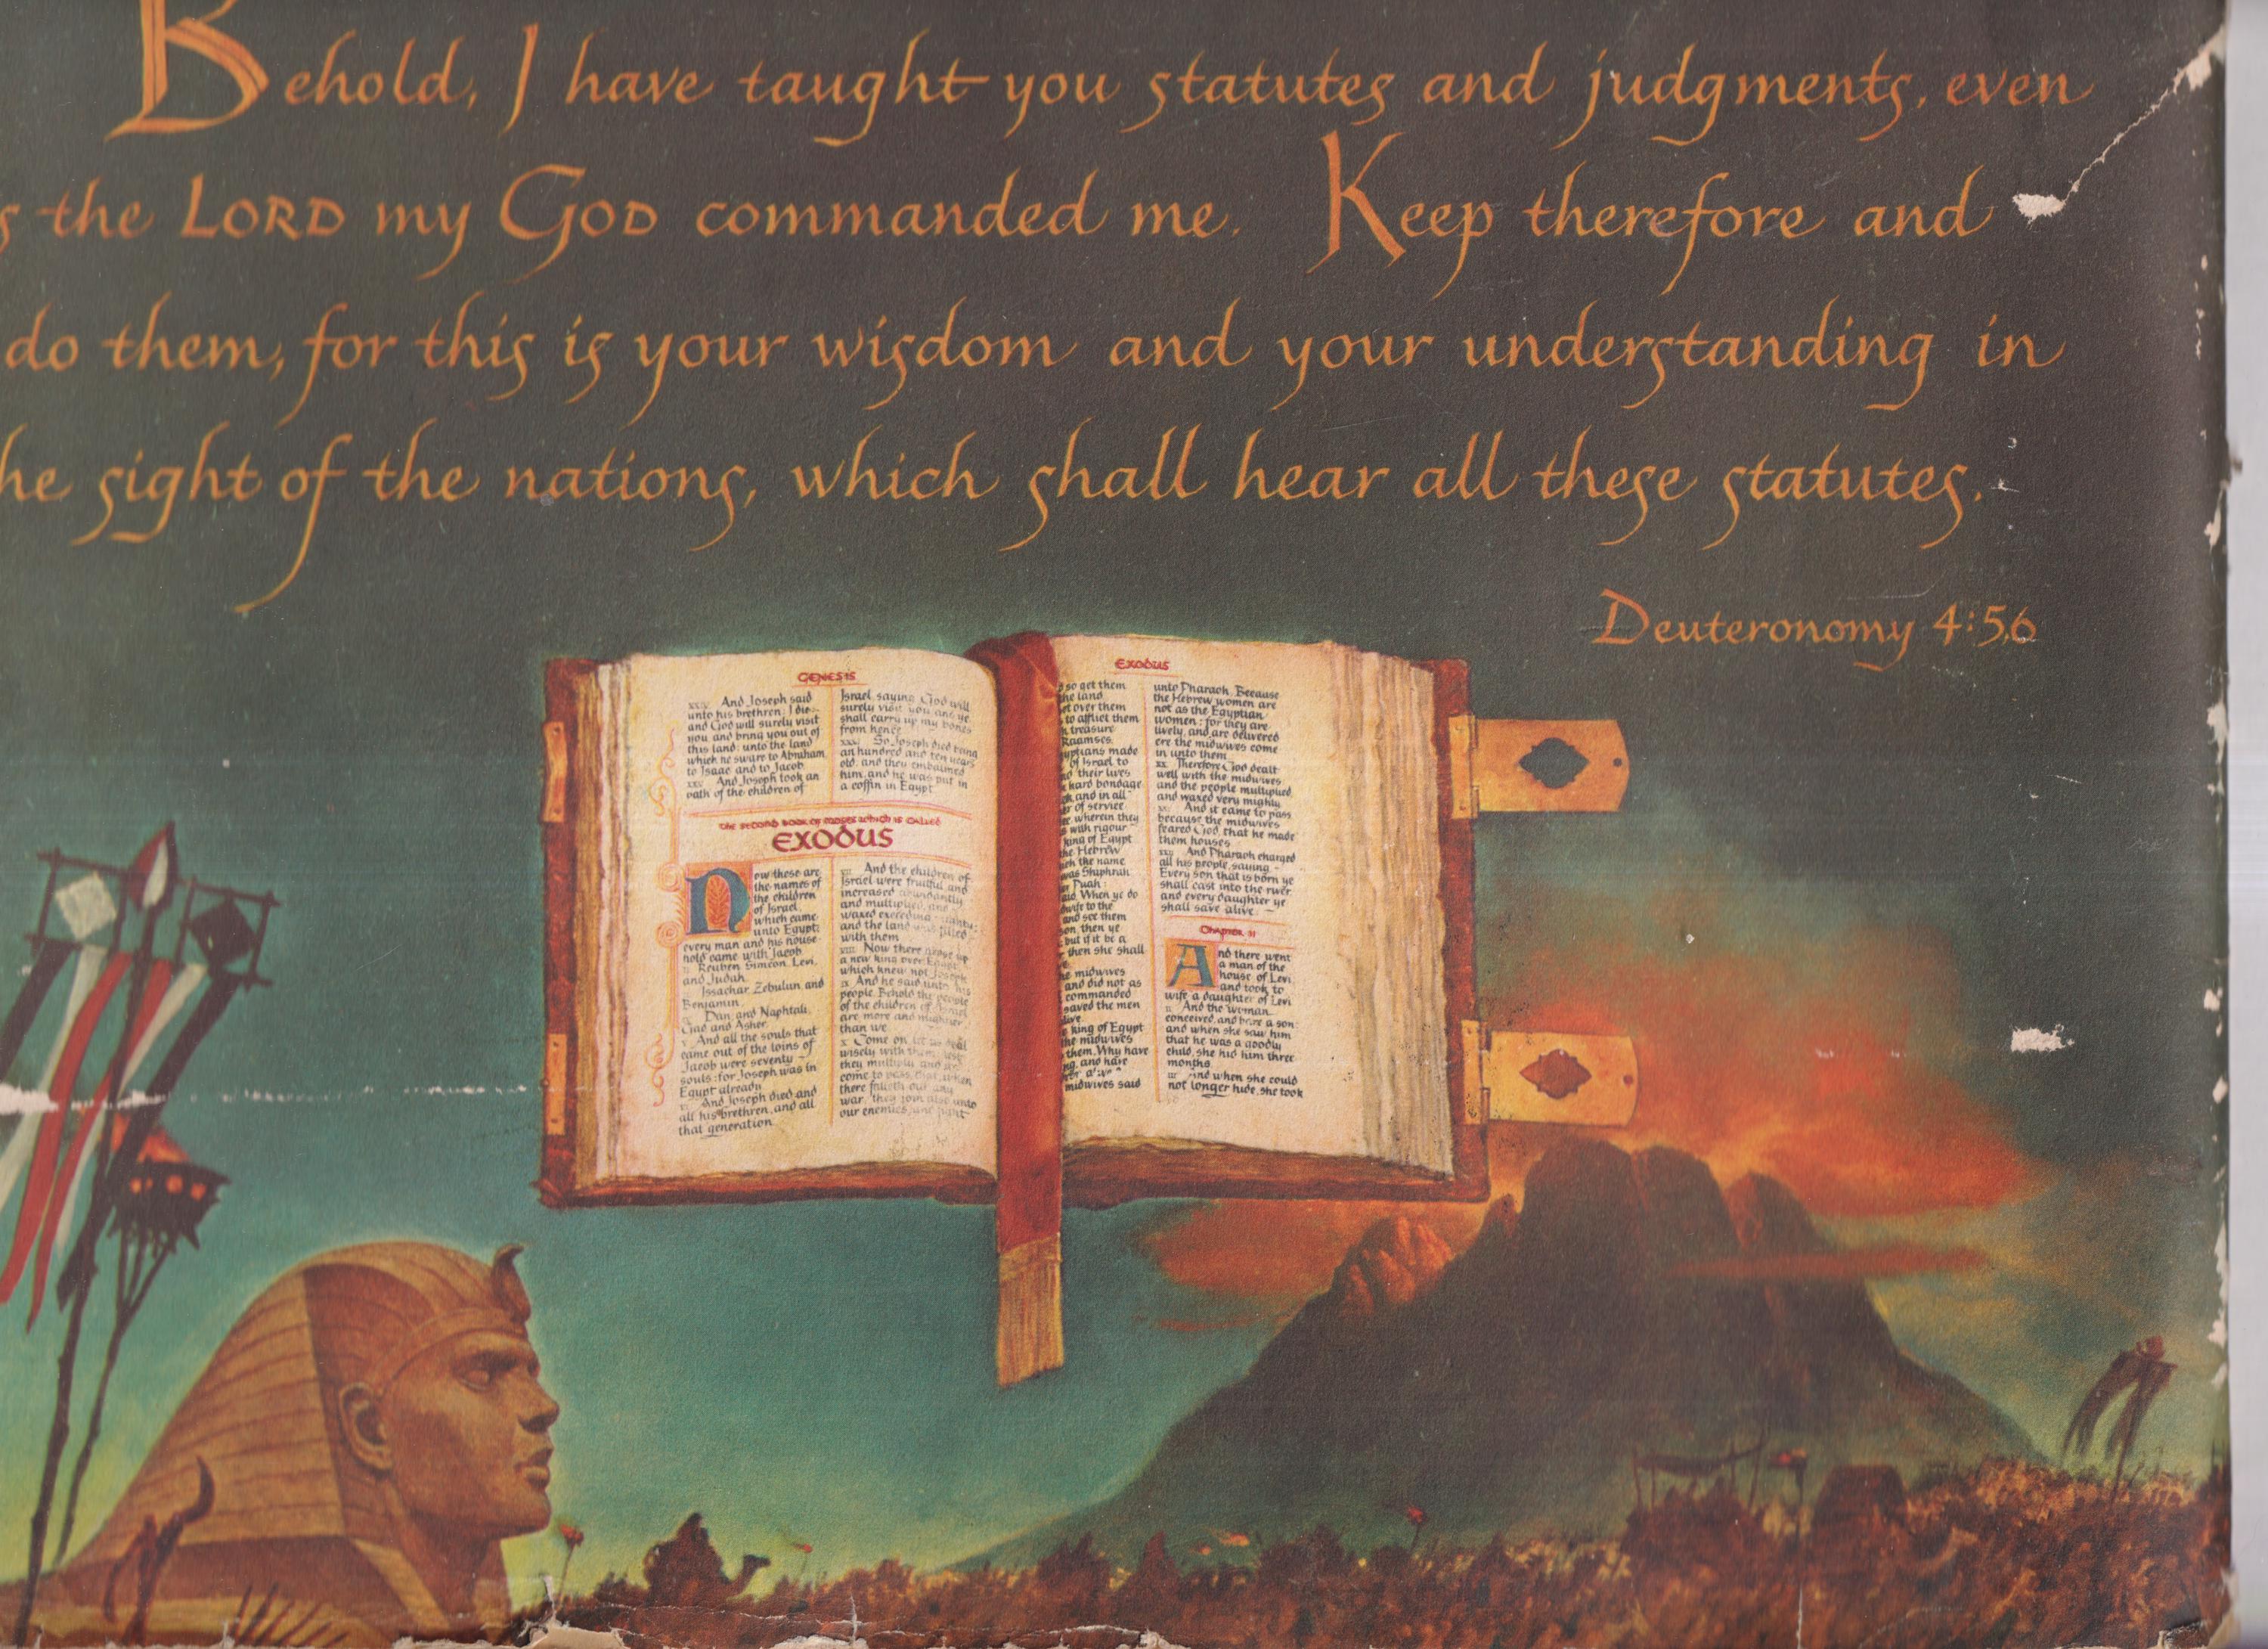 Behold, I have taught you statutes and judgments, even
the LORD my GOD commanded me. Keep therefore and
do them, for this is your wisdom and your understanding in
he sight of the nations, which shall hear all these statutes.
Deuteronomy 4:5,6
GENESIS
And Joseph said
unto his brethren: I die:
and God will surely visit
you, and bring you out of
this land: unto the land
which he sware to Abraham
to Isaac and to Jacob.
And Joseph took an
oath of the children of
Israel saying God will
surely visit you and ye
shall carry up my bones
from hence
So Joseph died being
an hundred and ten years
old: and they embalmed
him, and he was put in
a coffin in Egypt
THE SECOND BOOK OF MOSES WHICH IS CALLED
EXODUS
Now these are
the names of
the children
of Israel,
which came
unto Egypt:
every man and his house-
hold came with Jacob.
Reuben Simeon Levi,
and Judah.
Issachar Zebulun and
Benjamin
Dan and Naphtali,
Gad and Asher
And all the souls that
came out of the loins of
Jacob were seventy -
souls: for Joseph was in
Egypt already
And Joseph died and
all his brethren, and all
that generation
And the children of
Israel were fruitful and
increased abundantly
and multiplied, and
waxed exceeding mighty:
and the land was filled
with them
Now there arose up
a new king over Egypt
which knew not Joseph
And he said unto his
people, Behold the people
of the children of Israel
are more and mightier
than we
x Come on, let us deal
wisely with them: lest
they multiply and it
come to pass, that, when
there falleth out any
war, they join also unto
our enemies, and fight
EXODUS
so get them
he land
over them
to afflict them
treasure
Raamses.
yptians made
of Israel to
their lives
hard bondage
and in all
of service
wherein they
with rigour
king of Egypt
he Hebrew
the name
was Shiphrah
Puah:
aid, When ye do
dwife to the
and see them
son, then ye
but if it be a
then she shall
he midwives
and did not as
commanded
saved the men
live.
king of Egypt
he midwives
them, Why have
ng, and have
midwives said
unto Pharaoh, Because
the Hebrew women are
not as the Egyptian
women: for they are
lively, and are delivered
ere the midwives come
in unto them
xx Therefore God dealt
well with the midwives
and the people multiplied,
and waxed very mighty
And it came to pass
because the midwives
feared God, that he made
them houses
And Pharaoh charged
all his people, saying -
Every son that is born ye
shall cast into the river
and every daughter ye
shall save alive. -
Chapter II
And there went
a man of the
house of Levi
and took to
wife a daughter of Levi
And the woman
conceived, and bare a son:
and when she saw him
that he was a goodly
child, she hid him three
months.
And when she could
not longer hide, she took